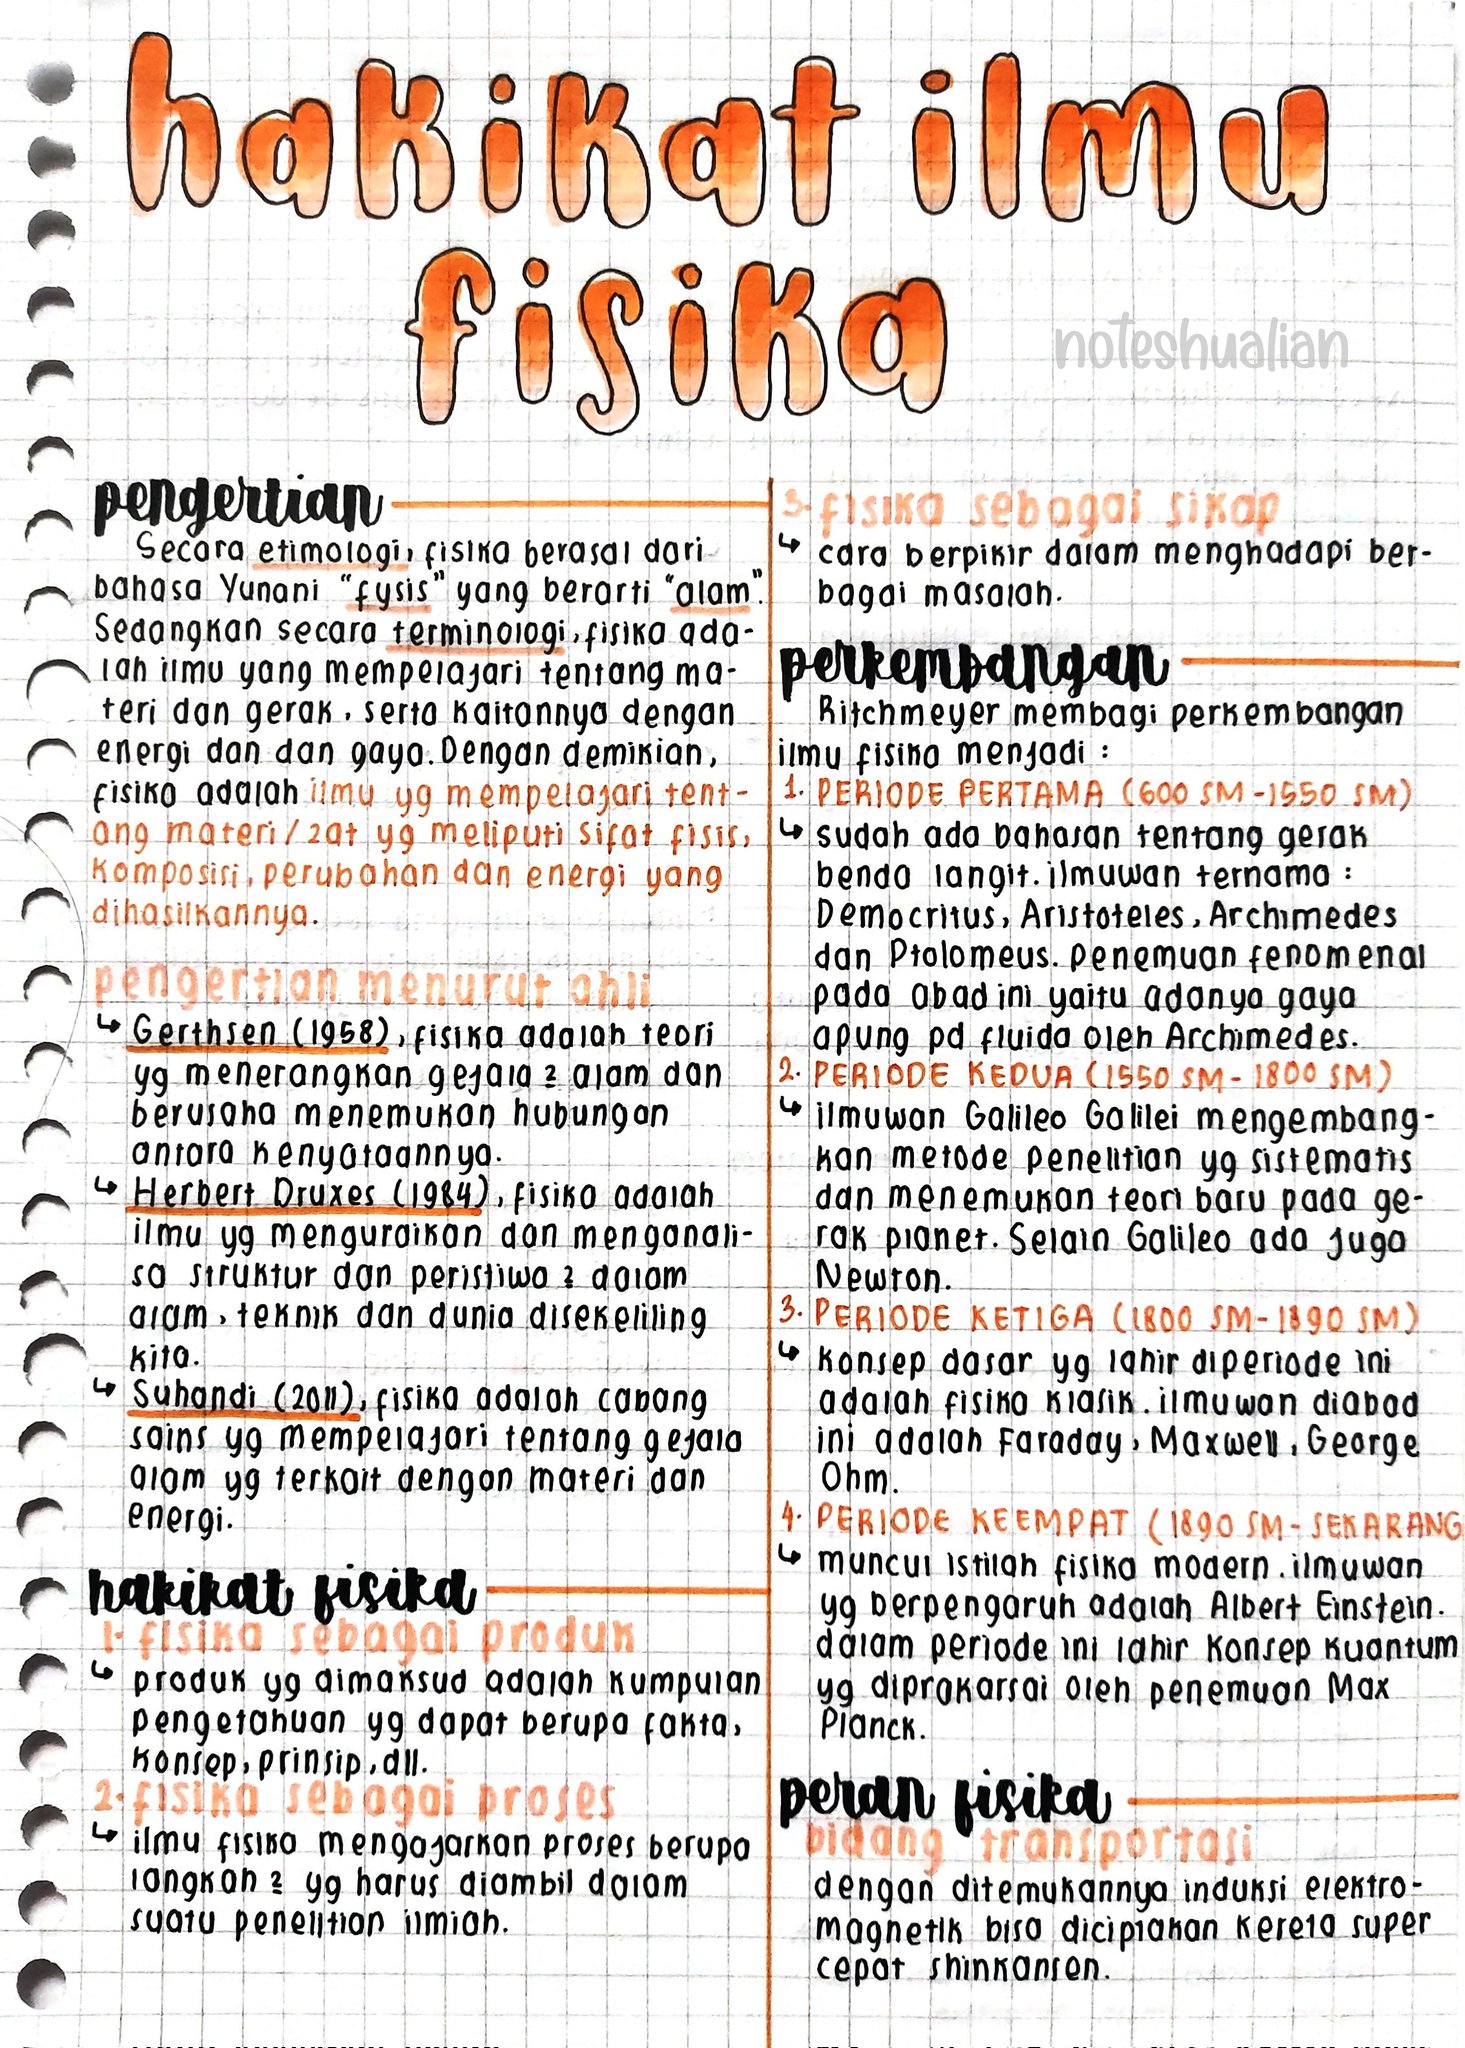 hakikat ilmu
fisika
noteshualian
pengertian
Secara etimologi, fisika berasal dari
bahasa Yunani "fysis" yang berarti "alam".
Sedangkan secara terminologi, fisika ada-
lah ilmu yang mempelajari tentang ma-
teri dan gerak, serta kaitannya dengan
energi dan dan gaya. Dengan demikian,
fisika adalah ilmu yg mempelajari tent-
ang materi/zat yg meliputi sifat fisis,
komposisi, perubahan dan energi yang
dihasilkannya.
pengertian menurut ahli
↳ Gerthsen (1958), fisika adalah teori
yg menerangkan gejala2 alam dan
berusaha menemukan hubungan
antara kenyataannya.
↳ Herbert Druxes (1984), fisika adalah
ilmu yg menguraikan dan menganali-
sa struktur dan peristiwa2 dalam
alam, teknik dan dunia disekeliling
kita.
↳ Suhandi (2011), fisika adalah cabang
sains yg mempelajari tentang gejala
alam yg terkait dengan materi dan
energi.
hakikat fisika
1. fisika sebagai produk
↳ produk yg dimaksud adalah kumpulan
pengetahuan yg dapat berupa fakta,
konsep, prinsip, dll.
2. fisika sebagai proses
↳ ilmu fisika mengajarkan proses berupa
langkah2 yg harus diambil dalam
suatu penelitian ilmiah.
3. fisika sebagai sikap
↳ cara berpikir dalam menghadapi ber-
bagai masalah.
perkembangan
Ritchmeyer membagi perkembangan
ilmu fisika menjadi :
1. PERIODE PERTAMA (600 SM - 1550 SM)
↳ sudah ada bahasan tentang gerak
benda langit. ilmuwan ternama :
Democritus, Aristoteles, Archimedes
dan Ptolomeus. penemuan fenomenal
pada abad ini yaitu adanya gaya
apung pd fluida oleh Archimedes.
2. PERIODE KEDUA (1550 SM - 1800 SM)
↳ ilmuwan Galileo Galilei mengembang-
kan metode penelitian yg sistematis
dan menemukan teori baru pada ge-
rak planet. Selain Galileo ada juga
Newton.
3. PERIODE KETIGA (1800 SM - 1890 SM)
↳ konsep dasar yg lahir diperiode ini
adalah fisika klasik. ilmuwan diabad
ini adalah Faraday, Maxwell, George
Ohm.
4. PERIODE KEEMPAT (1890 SM - SEKARANG
↳ muncul istilah fisika modern. ilmuwan
yg berpengaruh adalah Albert Einstein.
dalam periode ini lahir konsep kuantum
yg diprakarsai oleh penemuan Max
Planck.
peran fisika
bidang transportasi
dengan ditemukannya induksi elektro-
magnetik bisa diciptakan kereta super
cepat shinkansen.